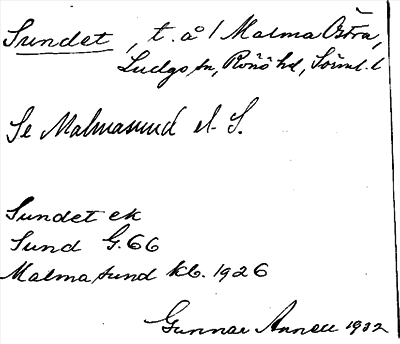 Sundet, t. å / Malma Östra,
Ludgo sn, Rönö hd, Söml. l
Se Malmasund el. S.
Sundet ek
Sund G. 66
Malmasund kb. 1926
Gunnar Annell 1932